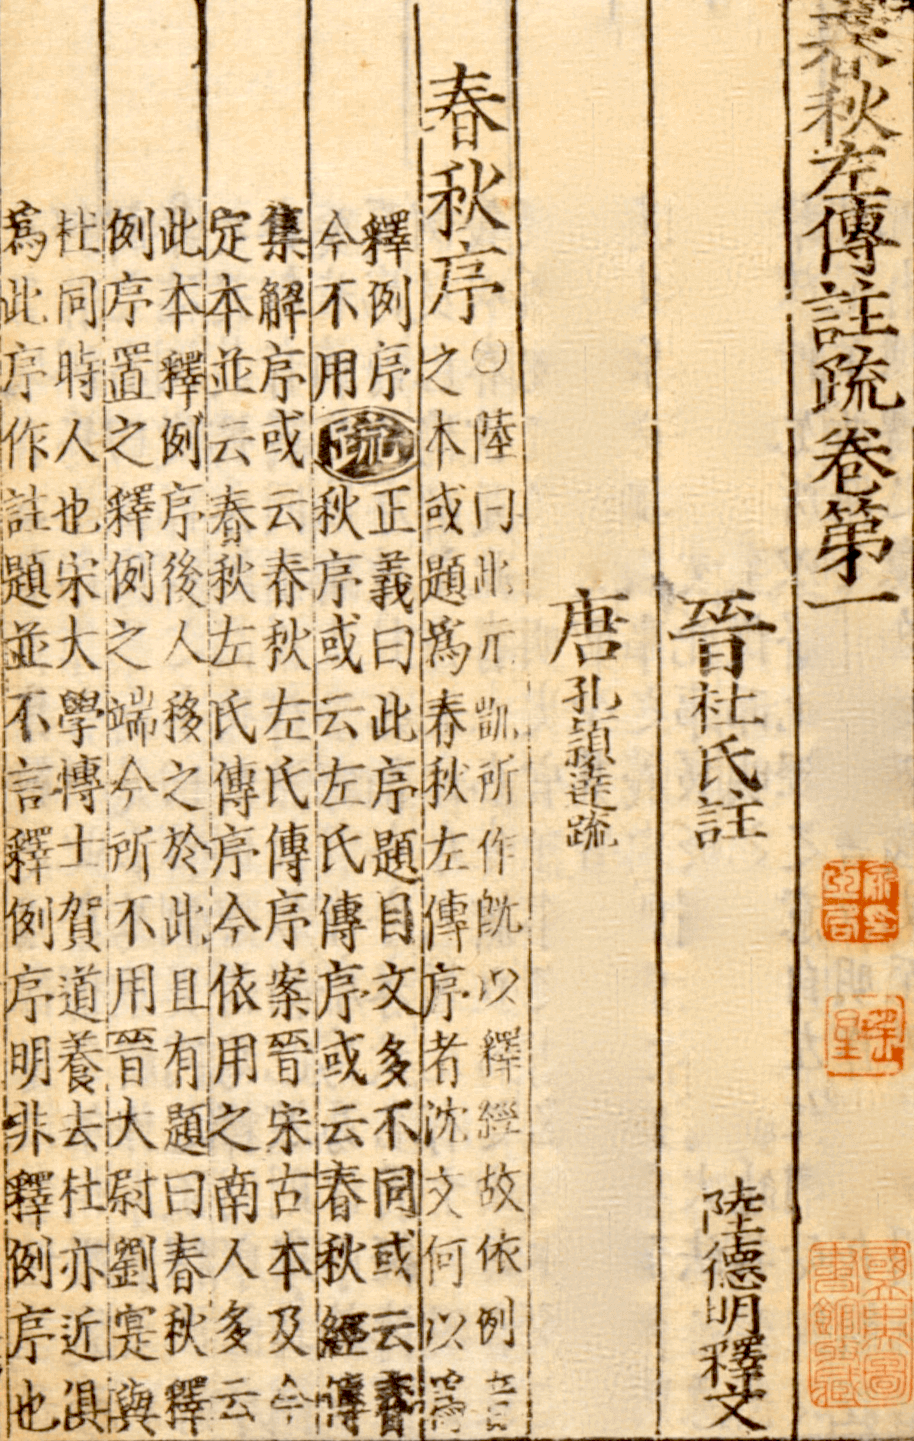 春秋左傳註疏卷第一
晉杜氏註
陸德明釋文
唐孔穎達疏
春秋序
○陸曰此元凱所作旣以釋經故依例音
之本或題爲春秋左傳序者沈文何以爲
釋例序
今不用
疏
正義曰此序題目文多不同或云春
秋序或云左氏傳序或云春秋經傳
集解序或云春秋左氏傳序案晉宋古本及今
定本並云春秋左氏傳序今依用之南人多云
此本釋例序後人移之於此且有題曰春秋釋
例序置之釋例之端今所不用晉大尉劉寔與
杜同時人也宋大學愽士賀道養去杜亦近俱
爲此序作註題並不言釋例序明非釋例序也
國立中央圖書館藏